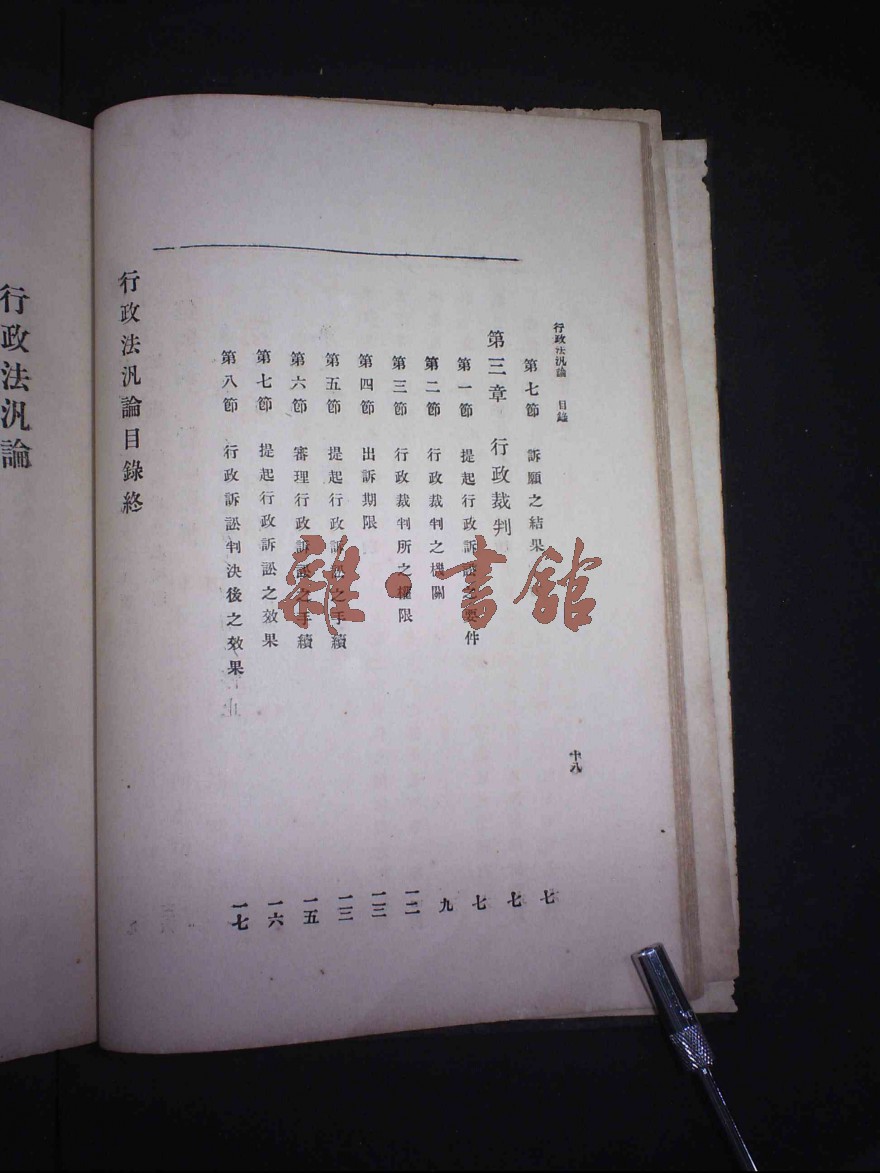 行政法汎論 目錄
十八
第七節 訴願之結果 七
第三章 行政裁判 七
第一節 提起行政訴訟之要件 七
第二節 行政裁判之機關 九
第三節 行政裁判所之權限 一二
第四節 出訴期限 一三
第五節 提起行政訴訟之手續 一三
第六節 審理行政訴訟之手續 一五
第七節 提起行政訴訟之效果 一六
第八節 行政訴訟判決後之效果 一七
行政法汎論目錄終
行政法汎論
雜·書館